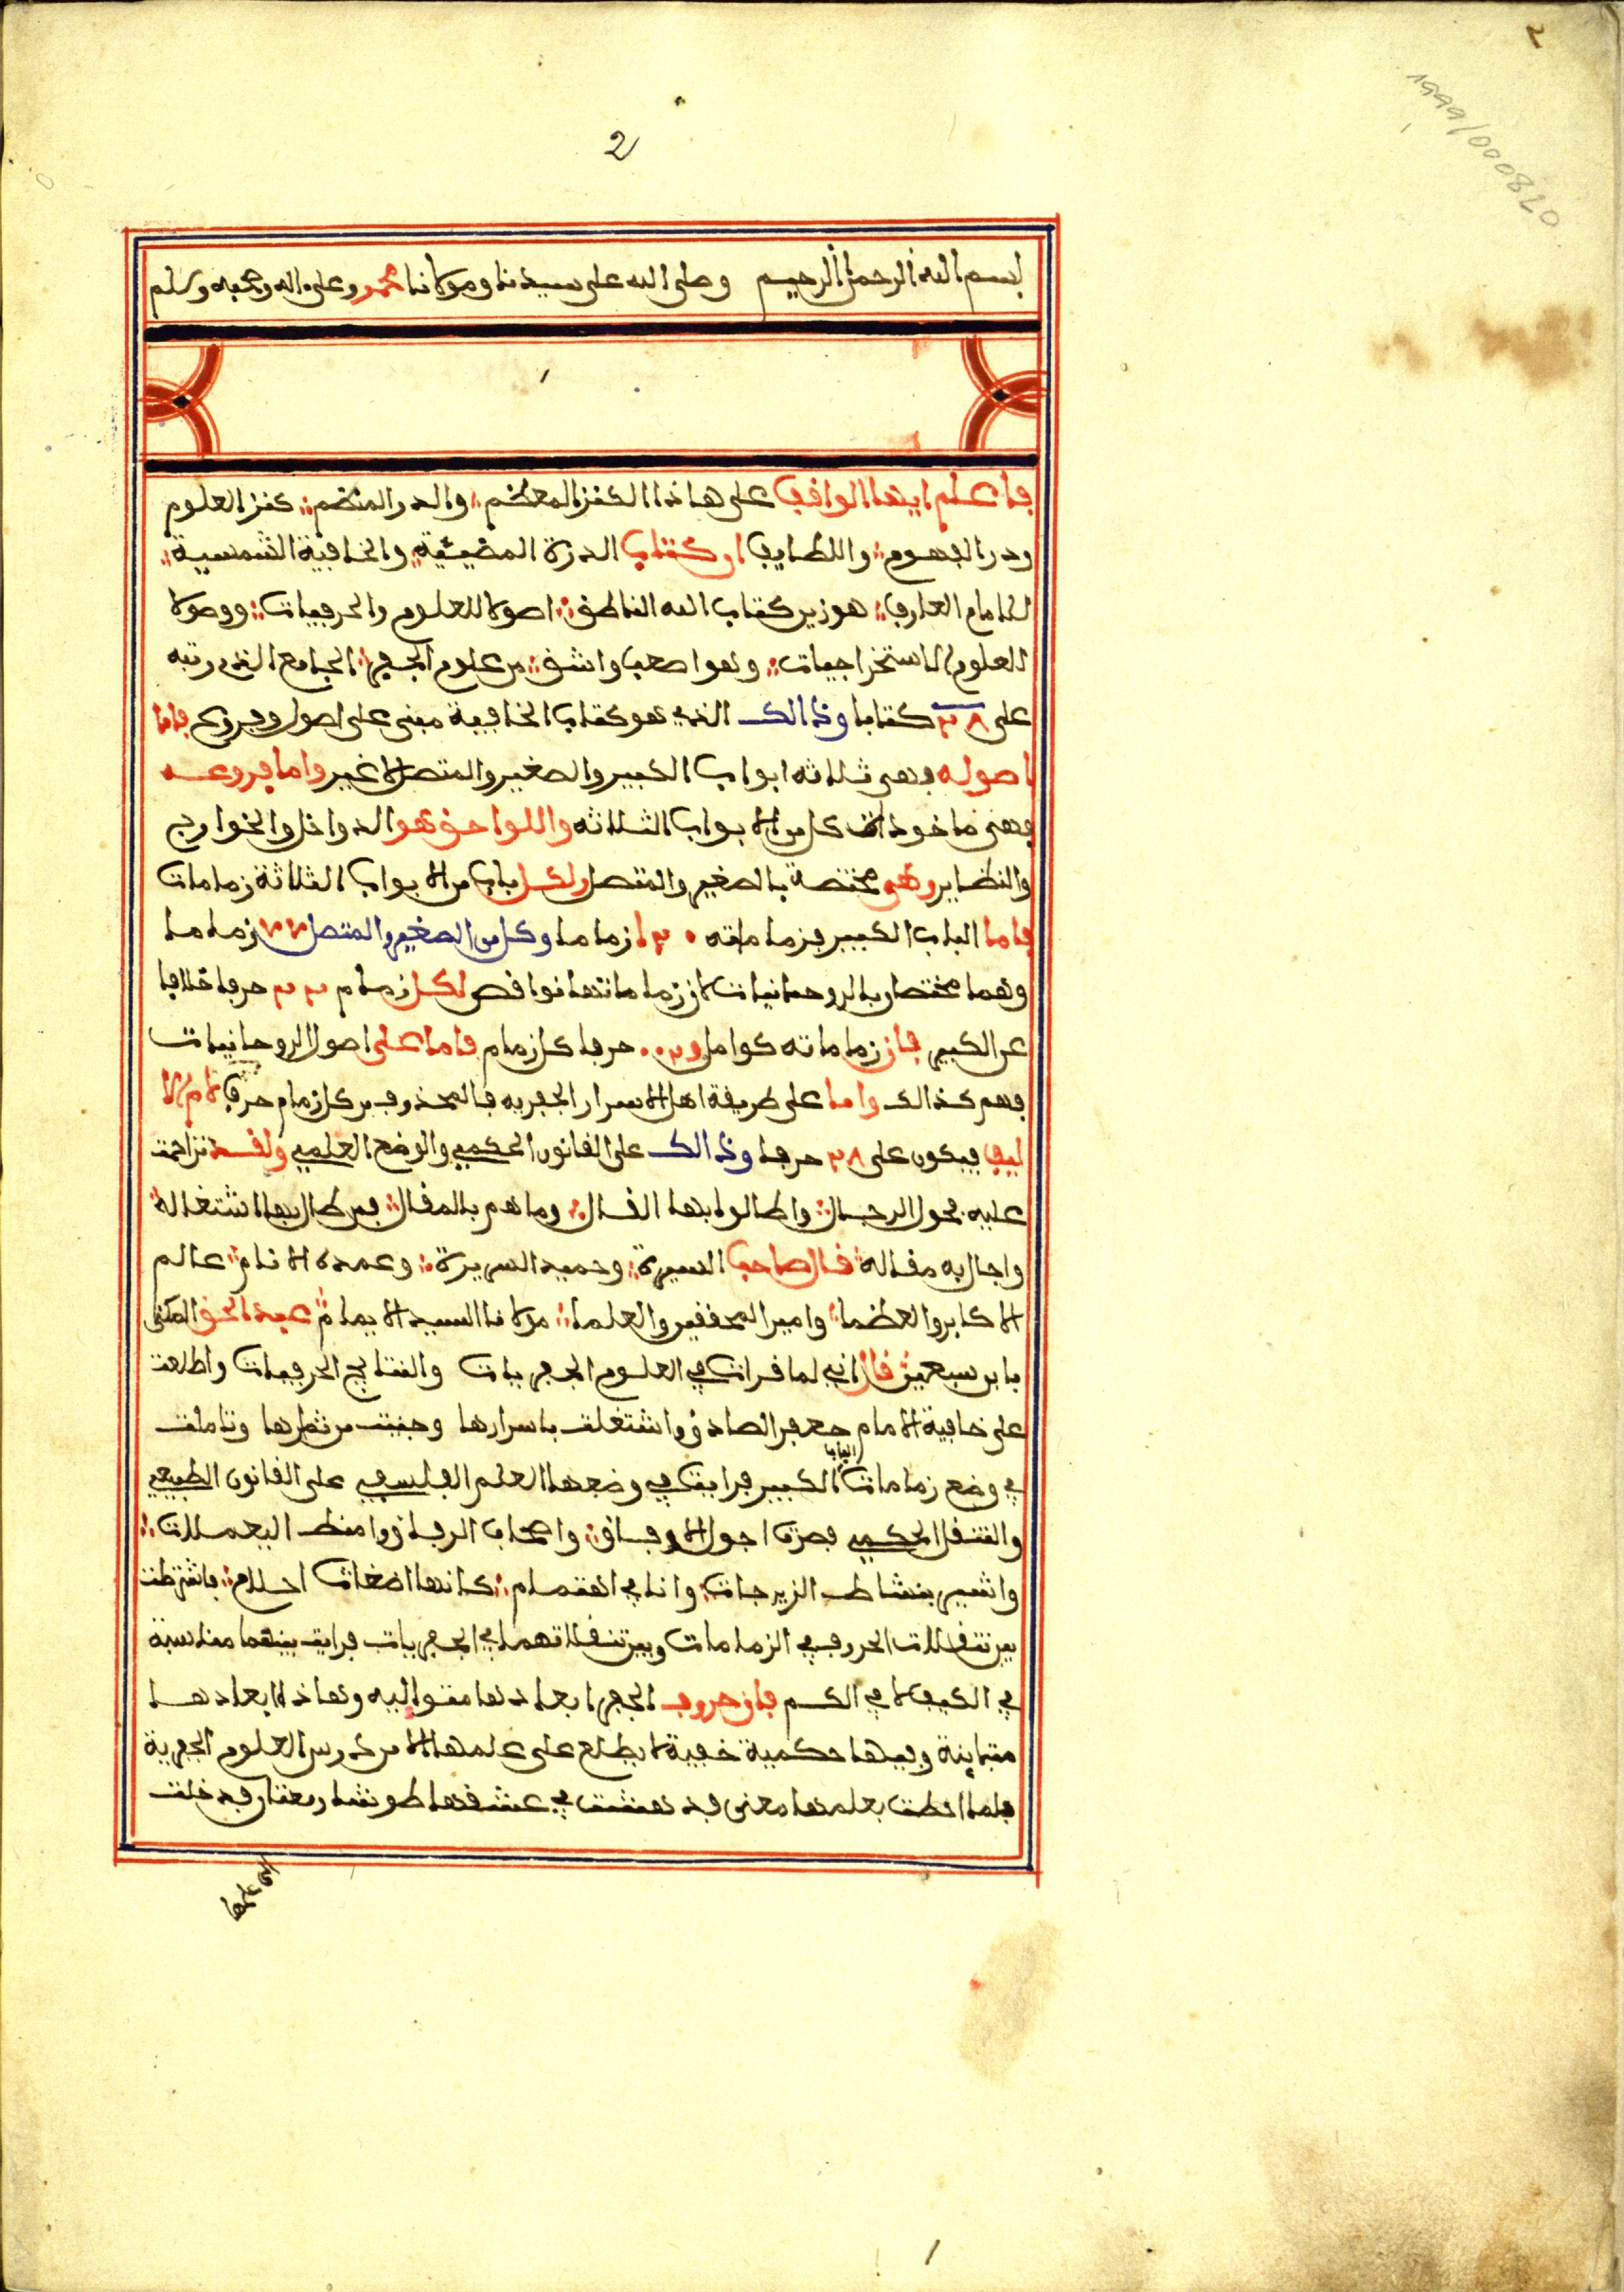 2
1999/000820
بسم الله الرحمن الرحيم وصلى الله على سيدنا ومولانا محمد وعلى اله وصحبه وسلم
فاعلم ايها الواقف على هاذا الكنز المعظم والدر المنظم كنز العلوم
ودر الفهوم واللطايف او كتاب الدرة المضيئية والخافية الشمسية
للامام العارف هو زير كتاب الله الناطق اصولا للعلوم والحرفيات ووصولا
للعلوم الاستخراجيات وهو اصعب واشق من علوم الجفر الجامع الذي رتبه
على ٢٨ كتابا وذالك الذي هو كتاب الخافية مبنى على اصول وفروع فاما
اصوله فهى ثلاثه ابواب الكبير والصغير والمتصل لا غير واما فروعه
فهى ماخوذات كل من الابواب الثلاثه واللواحق هو الدواخل والخوارج
والنظاير وهى مختصة بالصغير والمتصل ولكل باب من الابواب الثلاثة زمامات
فاما الباب الكبير فزماماته زماما وكل من الصغير والمتصل زماما
وهما مختصان بالروحانيات لان زماماتها نواقص لكل زمام حرفا خلافا
عن الكبير فان زماماته كوامل حرفا كل زمام فاما على اصول الروحانيات
فهم كذالك واما على طريقة اهل الاسرار الجفريه فالمحذوف من كل زمام حرف لام الا
ليف فيكون على ٢٨ حرفا وذالك على القانون الحكمي والوضع العلمي ولقد تزاحمت
عليه فحول الرجال واطالوا بها القال وما هم بالمقال فمن طال بها اشتغاله
واجال به مقاله قال صاحب السيرة وحميد السريرة وعمدة الانام عالم
الاكابر والعظما وامير المحققين والعلما مولانا السيد الايمام عبد الحق المكنى
بابن سبعين قال اني لما قرات في العلوم الجفريات والنتايج الحرفيات واطلعت
على خافية الامام جعفر الصادق واشتغلت باسرارها وجنيت من ثمرها وتاملت
في وضع زمامات الباب الكبير فرايت في وضعها العلم الفلسفي على القانون الطبيعي
والتنقل الحكمي فصرت اجول الاوفاق واصحاب الرقاق وامتط اليعملات
واشير بنشاط الزيرجات وانا في اهتمام كانها اضغاث احلام فاشترطت
بين تنقلات الحروف في الزمامات وبين تنقلاتهما في الجفريات فرايت بينهما مناسبة
في الكيف لا في الكم فان حروف الجفر ابعادها متواليه وهاذا ابعادها
متباينة وفيها حكمية خفية لا يطلع على علمها الا من درس العلوم الجفرية
فلما احطت بعلمها معنى قد دهشت في عشقها طونشا ومعنا وقد خلت
الى علمها